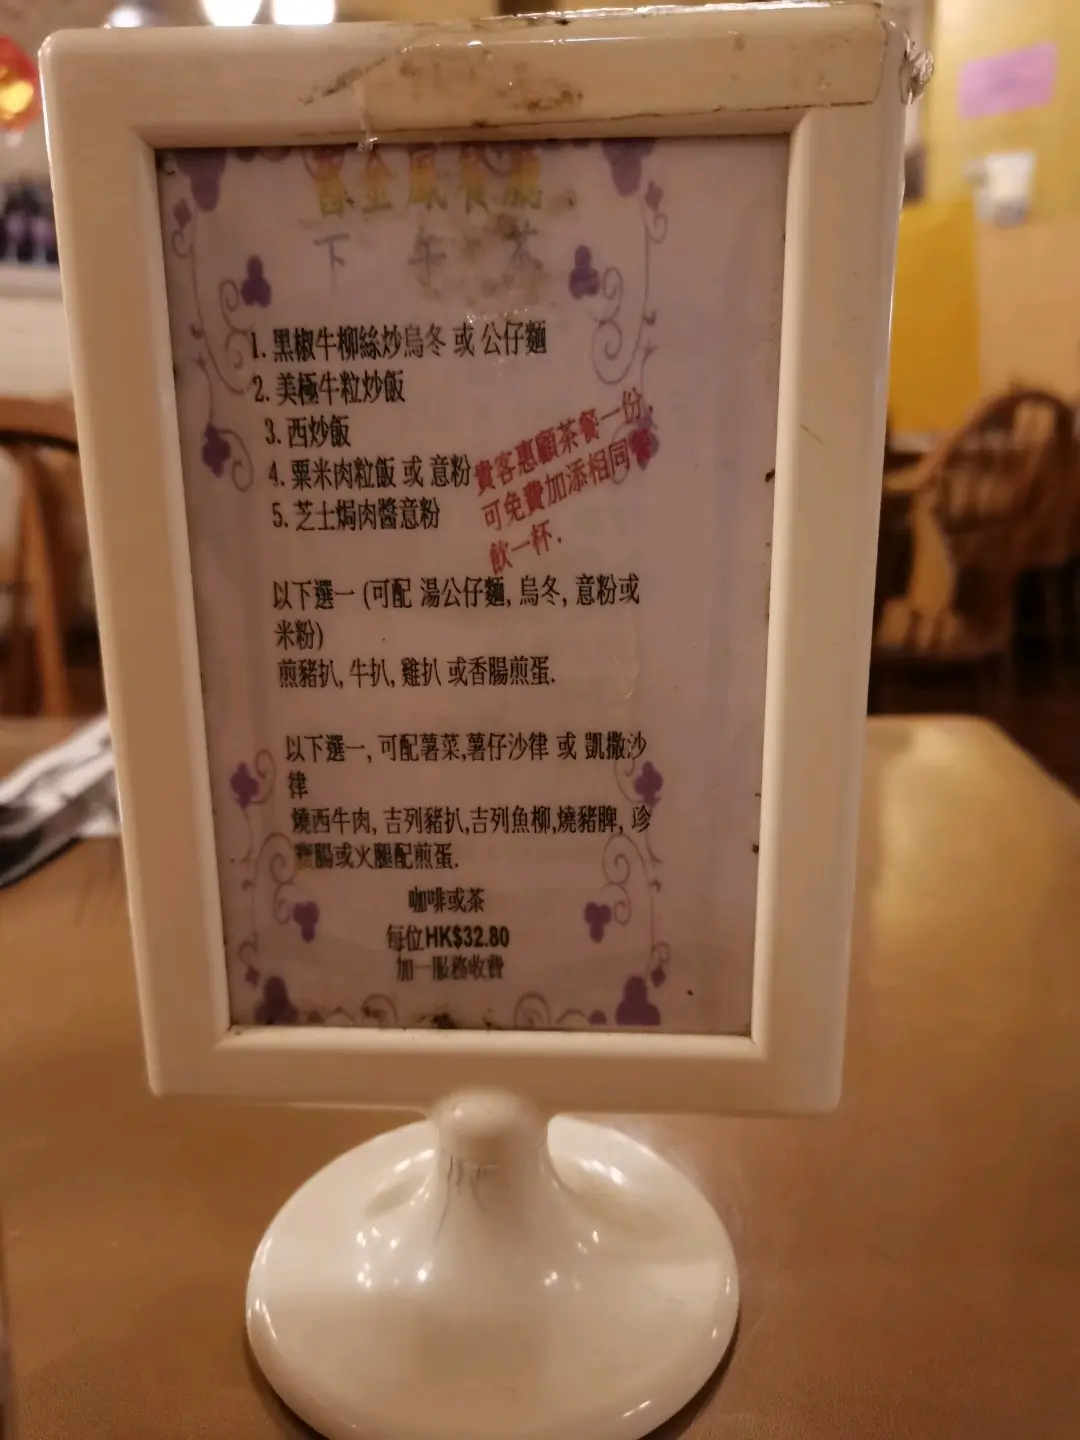 金鳳餐廳
下 午 茶
1. 黑椒牛柳絲炒烏冬 或 公仔麵
2. 美極牛粒炒飯
3. 西炒飯
4. 粟米肉粒飯 或 意粉
5. 芝士焗肉醬意粉
貴客惠顧茶餐一份,
可免費加添相同餐
飲一杯.
以下選一 (可配 湯公仔麵, 烏冬, 意粉或
米粉)
煎豬扒, 牛扒, 雞扒 或香腸煎蛋.
以下選一, 可配薯菜,薯仔沙律 或 凱撒沙
律
燒西牛肉, 吉列豬扒,吉列魚柳,燒豬脾, 珍
寶腸或火腿配煎蛋.
咖啡或茶
每位HK$32.80
加一服務收費